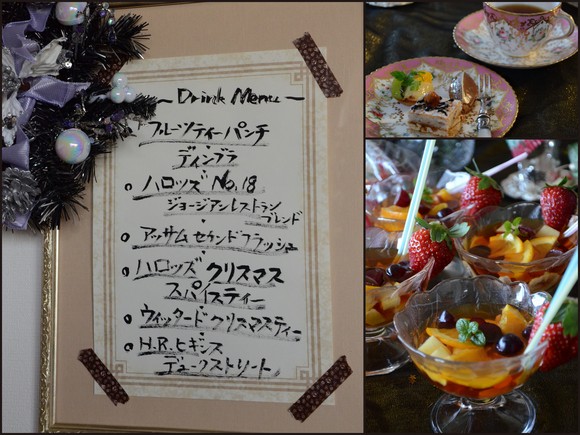 ~ Drink Menu ~
フルーツティーパンチ
ディンブラ
ハロッズ No.18
ジョージアンレストラン
ブレンド
アッサムセカンドフラッシュ
ハロッズ クリスマス
スパイスティー
ウィッタードクリスマスティー
H.R.ヒギンス
デュークストリート